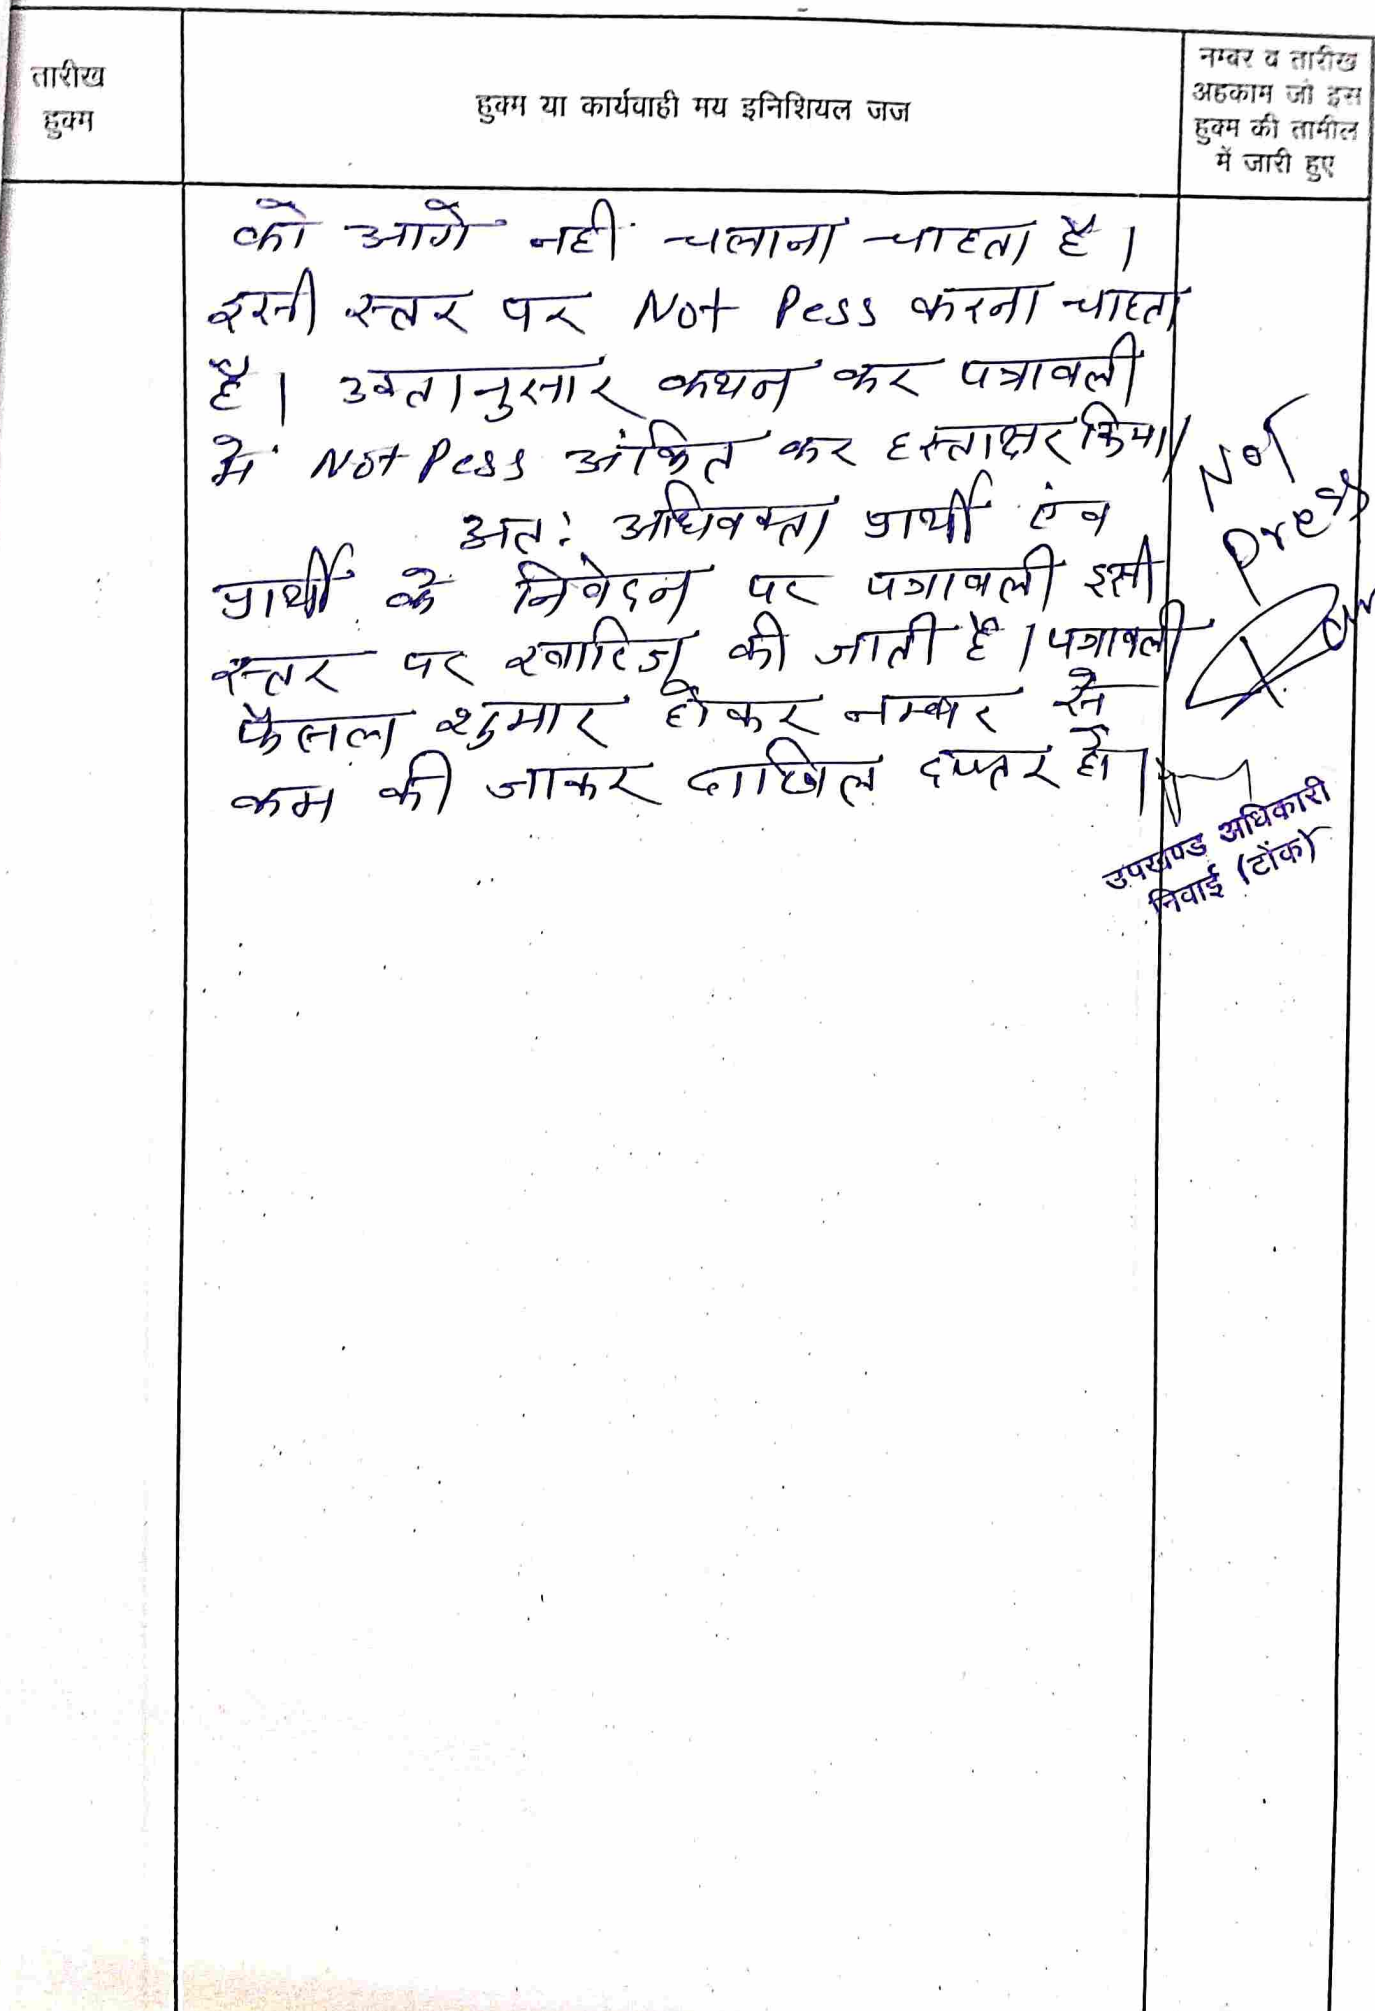 तारीख
हुक्म
हुक्म या कार्यवाही मय इनिशियल जज
नम्बर व तारीख
अहकाम जो इस
हुक्म की तामील
में जारी हुए
को आगे नही चलाना चाहता है।
इसी स्तर पर Not Pess करना चाहता
है। उक्तानुसार कथन कर पत्रावली
में Not Pess अंकित कर हस्ताक्षर किया।
अत: अधिवक्ता प्रार्थी एंव
प्रार्थी के निवेदन पर पत्रावली इसी
स्तर पर खारिज की जाती है। पत्रावली
फैसल शुमार होकर नम्बर से
कम की जाकर दाखिल दफ्तर हो।
Not
press
उपखण्ड अधिकारी
निवाई (टोंक)